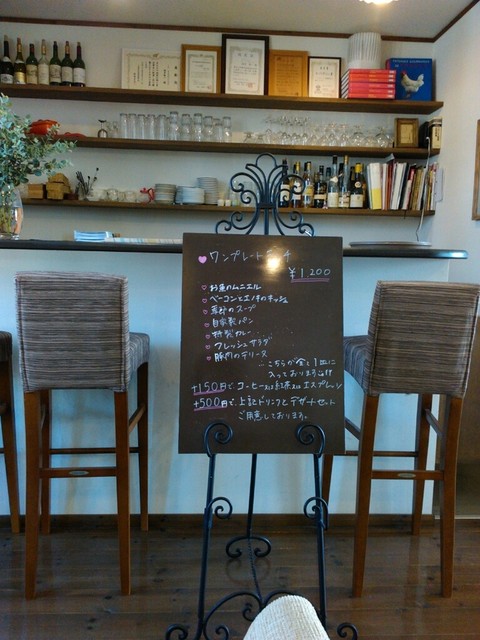 ワンプレートランチ
¥1200
お魚のムニエル
ベーコンとエノキのキッシュ
のスープ
自家製パン
特製カレー
フレッシュサラダ
豚肉のテリーヌ
…こちらが全て1皿に
入っております
+150円で、コーヒー又は紅茶又はエスプレッソ
+500円で、上記ドリンクとデザートセット
ご用意しております。